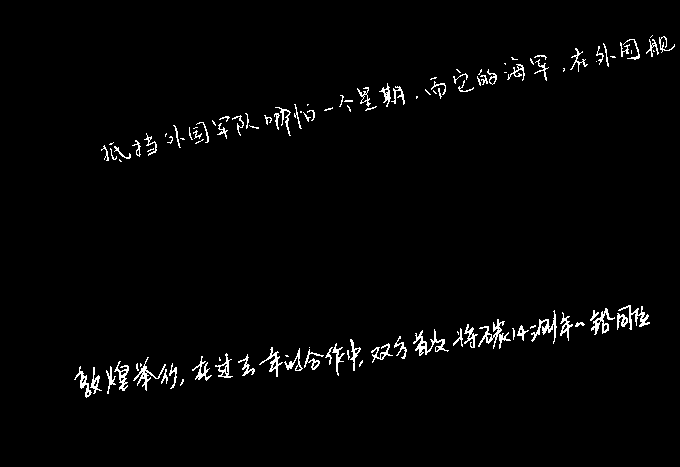 抵挡外国军队哪怕一个星期，而它的海军，在外国舰
敦煌举行，在过去一年的合作中，双方首次将碳14测年、铅同位